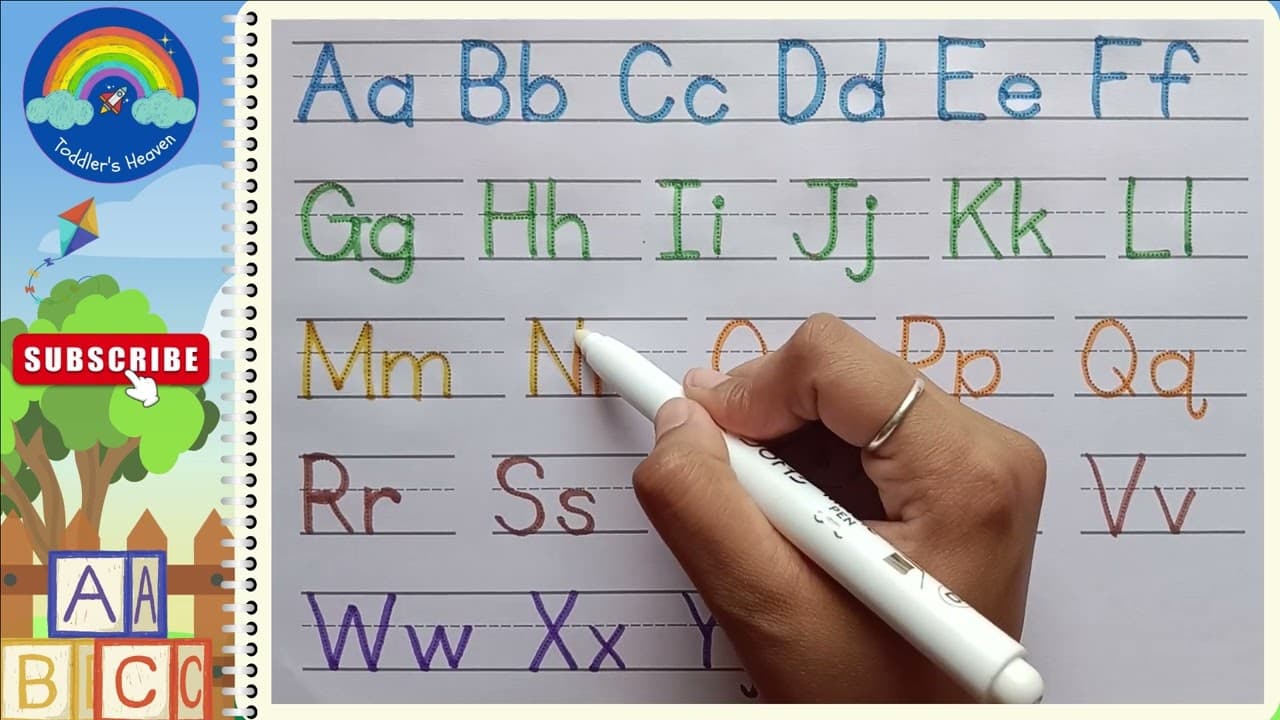 Toddler's Heaven
SUBSCRIBE
A A
B C C
Aa Bb Cc Dd Ee Ff
Gg Hh Ii Jj Kk Ll
Mm N Pp Qq
Rr Ss Vv
Ww Xx Y
PEN